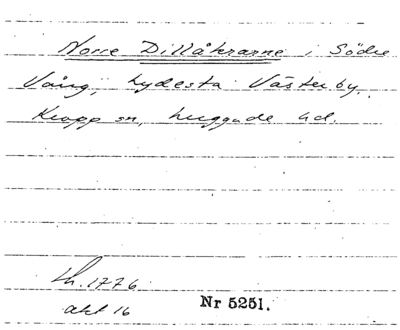 Norre Dillåkrarne i Södre
Vång, lydesta Västerby,
Kropp sn, Luggude hd.
Lh. 1776
akt 16
Nr 5251.